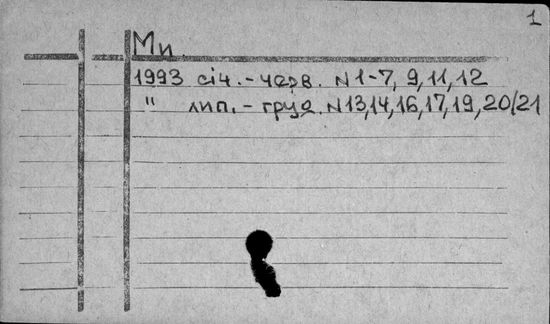 1
Ми.
1993 січ.-черв. N 1-7, 9, 11, 12
" лип.-груд. N 13, 14, 16, 17, 19, 20/21